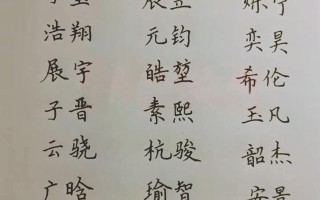 浩翔 元钧 奕昊
展宇 皓堃 希伦
子晋 素熙 玉凡
云骁 杭骏 韶杰
广晗 瑜智 安景